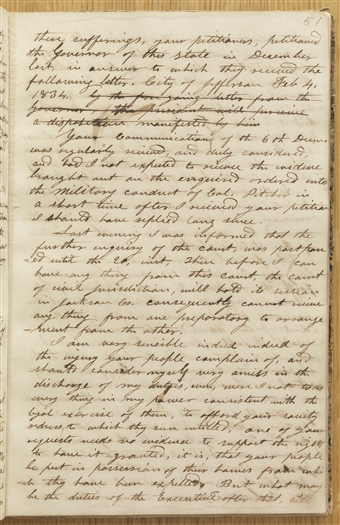 51
these sufferings, your petitioners, petitioned
the Governor of this state in December
last, in answer to which they received the
following letter. City of Jefferson Feb 4,
1834.
governor
a disposition manifested by him
Your Communication of the 6th Decm
was regularly received, and duly considered,
and had I not expected to receive the evidence
brought out on the enquired ordered into
the Military Conduct of Col. Pitcher in
a short time after I received your petition
I should have replied long since.
Last evening I was informed that the
further enquiry of the court, was postpon
-ed until the 20, inst. Then before I can
have any thing from this court, the court
of civil jurisdiction, will hold its session
in Jackson Co. consequently cannot receive
any thing from one preparatory to arrange
-ment from the other.
I am very sensible indeed indeed of
the injury your people complain of, and
should consider myself very amiss in the
discharge of my duties, were, were I not to do
every thing in my power consistent with the
legal exercise of them, to afford your society
redress to which they seem entitled, one of your
requests needs no evidence to support the right
to have it granted, it is, that your people
be put in possession of their homes from whi-
ch they have been expelled, But what may
be the duties of the Executive after that, will